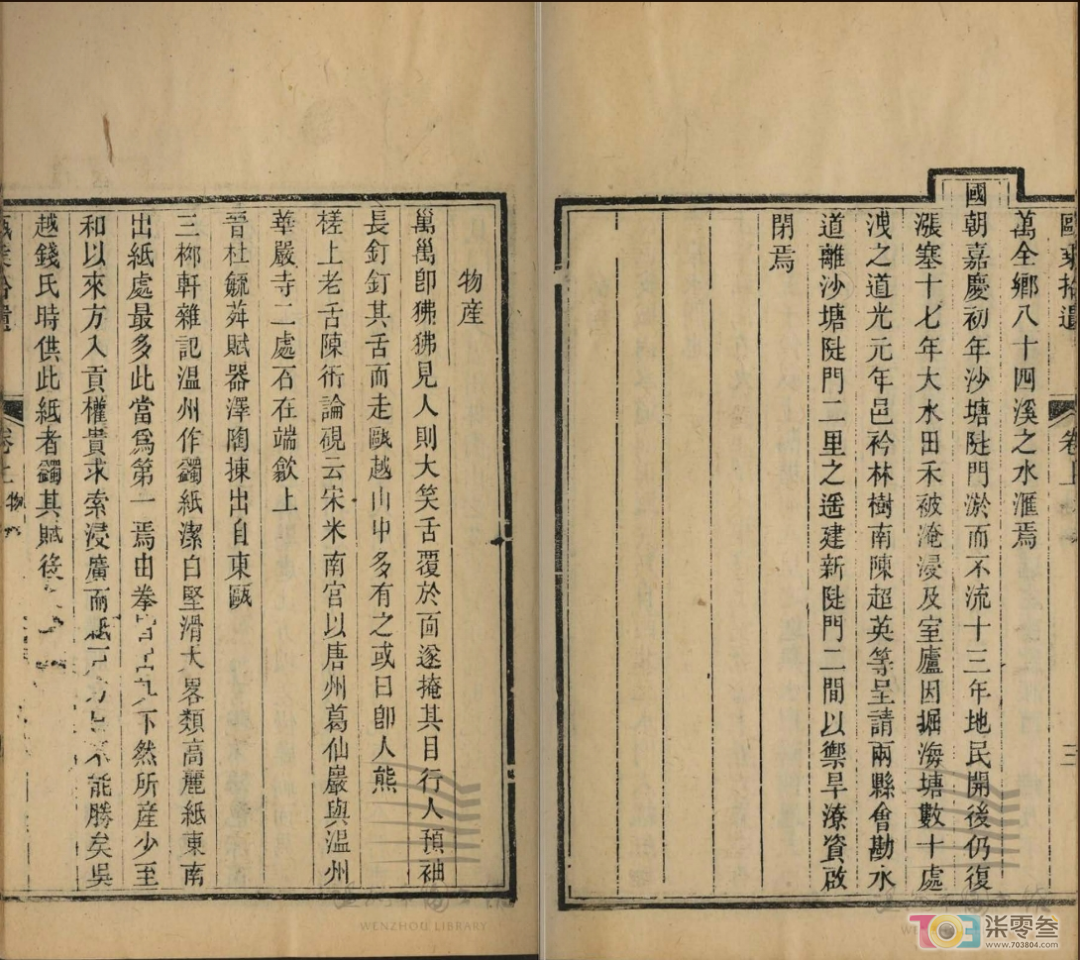 甌乘拾遺 卷上 三
萬全鄉八十四溪之水滙焉
國朝嘉慶初年沙塘陡門淤而不流十三年地民開後仍復
漲塞十七年大水田禾被淹浸及室廬因掘海塘數十處
洩之道光元年邑衿林樹南陳超英等呈請兩縣會勘水
道離沙塘陡門二里之遥建新陡門二間以禦旱潦資啟
閉焉
物産
萬萬卽狒狒見人則大笑舌覆於面遂掩其目行人預袖
長釘釘其舌而走甌越山中多有之或曰卽人熊
槎上老舌陳術論硯云宋米南宫以唐州葛仙巖與温州
華嚴寺二處石在端歙上
晉杜毓荈賦器澤陶揀出自東甌
三栁軒雜記温州作蠲紙潔白堅滑大畧類高麗紙東南
出紙處最多此當爲第一焉由拳皆出其下然所産少至
和以來方入貢權貴求索浸廣而紙 能勝矣吳
越錢氏時供此紙者蠲其賦後
甌乘拾遺 卷上 物
WENZHOU LIBRARY
703 柒零叁
www.703804.com